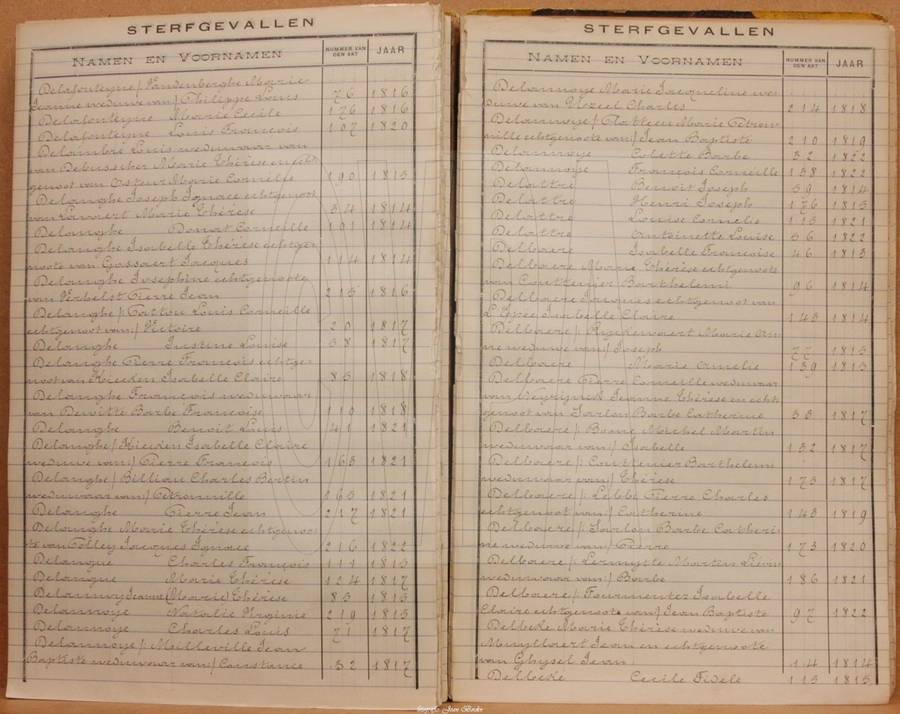 STERFGEVALLEN
NAMEN EN VOORNAMEN NUMMER VAN DEN AKT JAAR
Delafonteyne / Vandenberghe Marie
Jeanne weduwe van / Philippe Louis 76 1816
Delafonteyne Marie Cecile 176 1816
Delafonteyne Louis François 107 1820
Delambre Louis weduwaar van
van Debusscher Marie Thérèse en echt
genoot van Marie Cornelie 190 1813
Delanghe Joseph Ignace echtgenoot
van Marie Thérèse 34 1814
Delanghe Donat Corneille 101 1814
Delanghe Isabelle Thérèse echtge
noote van Gossaert Jacques 114 1814
Delanghe Josephine echtgenoote
van Verbelst Pierre Jean 215 1816
Delanghe / Catton Louis Corneille
echtgenoot van / Victoire 20 1817
Delanghe Justine Louise 38 1817
Delanghe Pierre François echtge
noot van Kiecken Isabelle Claire 85 1818
Delanghe François weduwaar
van Dewitte Barbe Françoise 110 1818
Delanghe Benoit Louis 41 1821
Delanghe / Kiecken Isabelle Claire
weduwe van / Pierre François 163 1821
Delanghe / Billiau Charles Bertin
weduwaar van / Petronille 165 1821
Delanghe Pierre Jean 217 1821
Delanghe Marie Thérèse echtgenoo
te van Jacques Ignace 216 1822
Delangue Charles François 111 1813
Delangue Marie Thérèse 124 1817
Delannoy Jeanne (Marie) Thérèse 83 1813
Delannoye Natalie Virginie 219 1813
Delannoye Charles Louis 71 1817
Delannoye / Milleville Jean
Baptiste weduwaar van / Constance 52 1817
STERFGEVALLEN
NAMEN EN VOORNAMEN NUMMER VAN DEN AKT JAAR
Delannoye Marie Jacqueline we
duwe van Charles 214 1818
Delannoye / Platteeu Marie Petron
nille echtgenoote van / Jean Baptiste 210 1819
Delannoye Colette Barbe 32 1822
Delannoye François Corneille 138 1822
Delattre Benoit Joseph 59 1814
Delattre Henri Joseph 176 1815
Delattre Louise Cornelie 113 1821
Delattre Antoinette Louise 56 1822
Delbaere Isabelle Françoise 46 1813
Delbaere Marie Thérèse echtgenoote
van Couttenier Barthelemi 96 1814
Delbaere Jacques echtgenoot van
Isabelle Claire 143 1814
Delbaere / Ryckewaert Marie An
ne weduwe van / Joseph 77 1815
Delbaere Marie Amelie 139 1815
Delbaere Pierre Corneille weduwaar
van Jeanne Thérèse en echt
genoot van Sarlon Barbe Catherine 33 1817
Delbaere / Bome Michel Martin
weduwaar van / Isabelle 132 1817
Delbaere / Couttenier Barthelemi
weduwaar van / Thérèse 173 1817
Delbaere / Lebbe Pierre Charles
echtgenoot van / Catherine 143 1819
Delbaere / Sarlon Barbe Catheri
ne weduwe van / Pierre 173 1820
Delbaere / Lermytte Martin Liévin
weduwaar van / Barbe 186 1821
Delbaere / Fourmentez Isabelle
Claire echtgenoote van / Jean Baptiste 97 1822
Delbeke Marie Thérèse weduwe van
Muyllaert Jean en echtgenoote
van Ghysel Jean 14 1814
Delbeke Cecile Fidele 113 1815